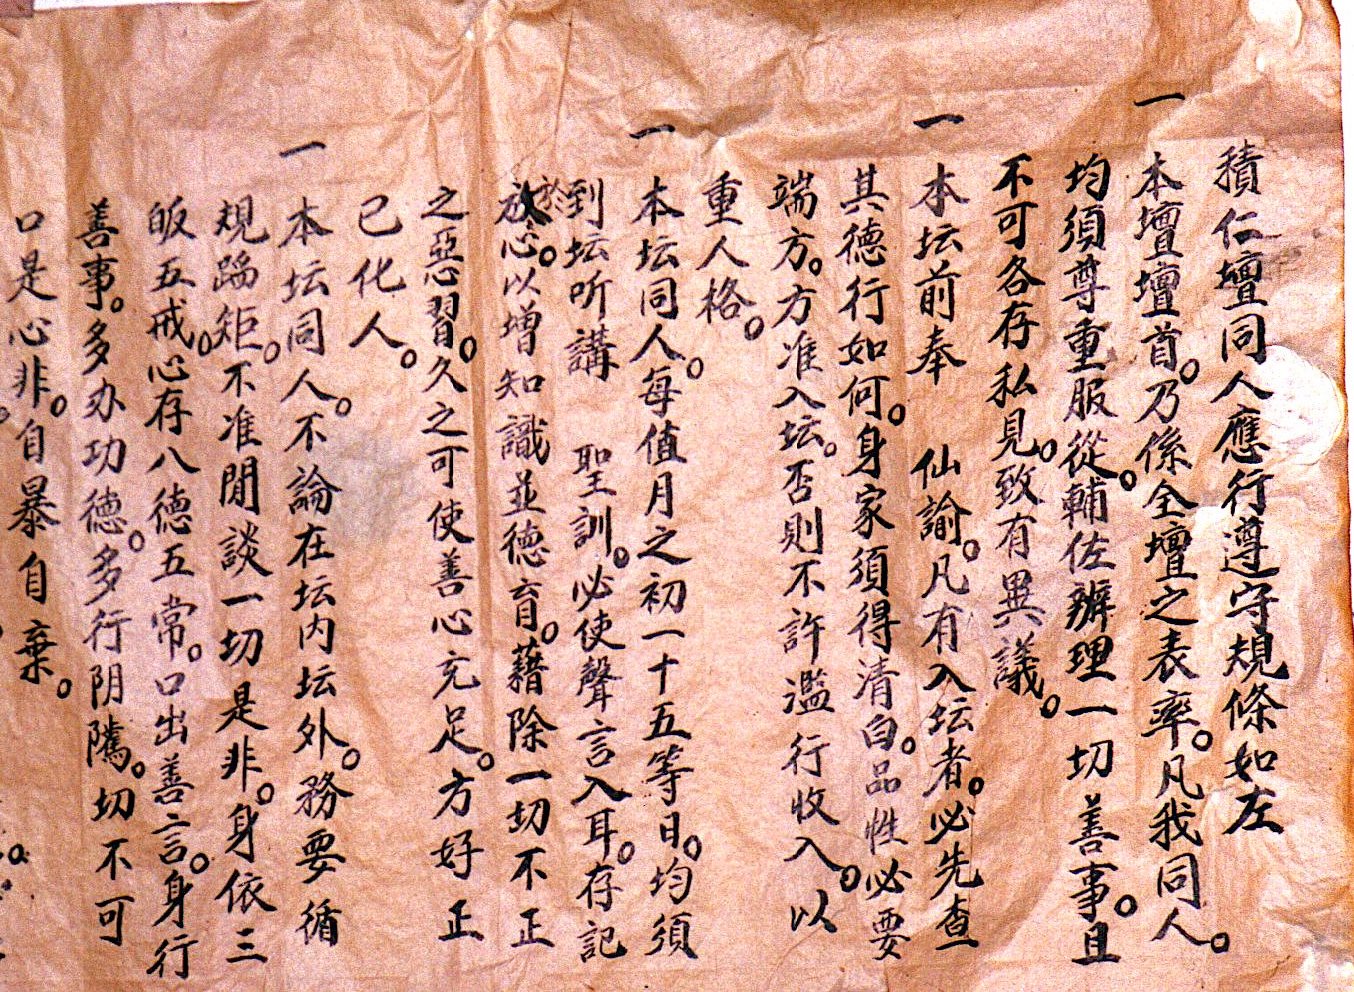 積仁壇同人應行遵守規條如左
一 本壇壇首。乃係全壇之表率。凡我同人。
均須尊重服從。輔佐辦理一切善事。且
不可各存私見。致有異議。
一 本坛前奉 仙諭。凡有入坛者。必先查
其德行如何。身家須得清白。品性必要
端方。方准入坛。否則不許濫行收入。以
重人格。
一 本坛同人。每值月之初一十五等日。均須
到坛听講 聖訓。必使聲言入耳。存記
於放心。以增知識並德育。藉除一切不正
之惡習。久之可使善心充足。方好正
已化人。
一 本坛同人。不論在坛内坛外。務要循
規蹈矩。不准閒談一切是非。身依三
皈五戒。心存八德五常。口出善言。身行
善事。多办功德。多行阴隲。切不可
口是心非。自暴自棄。